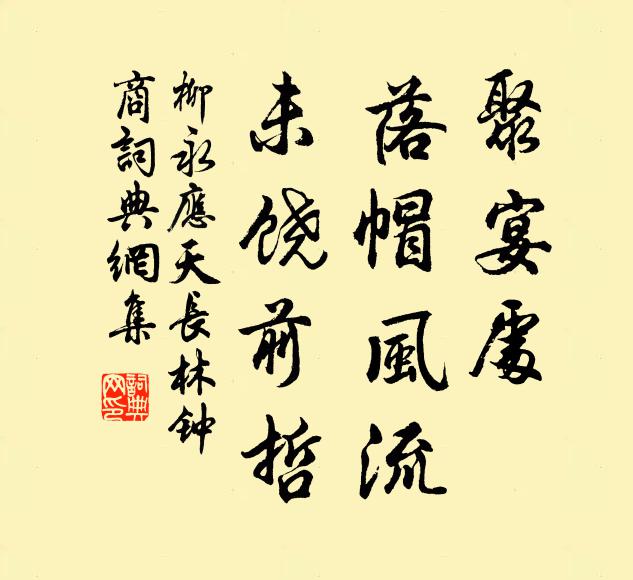 聚宴處
落帽風流
未饶前哲
柳永應天長林钟
商詞典網集
詞典
网印